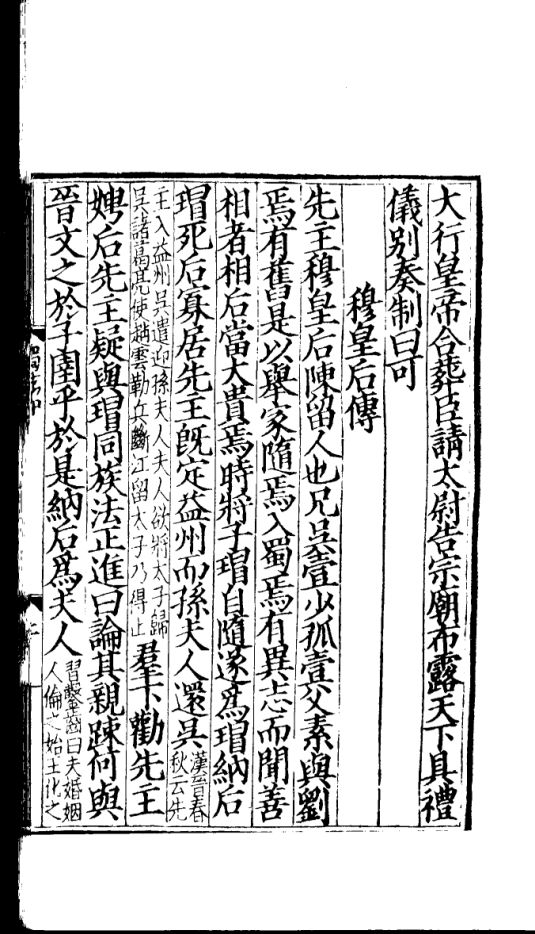 大行皇帝合葬臣請太尉告宗廟布露天下具禮
儀別奏制曰可
穆皇后傳
先主穆皇后陳留人也兄吳壹少孤壹父素與劉
焉有舊是以舉家隨焉入蜀焉有異志而聞善
相者相后當大貴焉時將子瑁自隨遂爲瑁納后
瑁死后寡居先主旣定益州而孫夫人還吳漢晉春
秋云先
主入益州吳遣迎孫夫人夫人欲將太子歸
吳諸葛亮使趙雲勒兵斷江留太子乃得止
羣下勸先主
娉后先主疑與瑁同族法正進曰論其親踈何與
晉文之於子圉乎於是納后爲夫人習鑿齒曰夫婚姻
人倫之始王化之